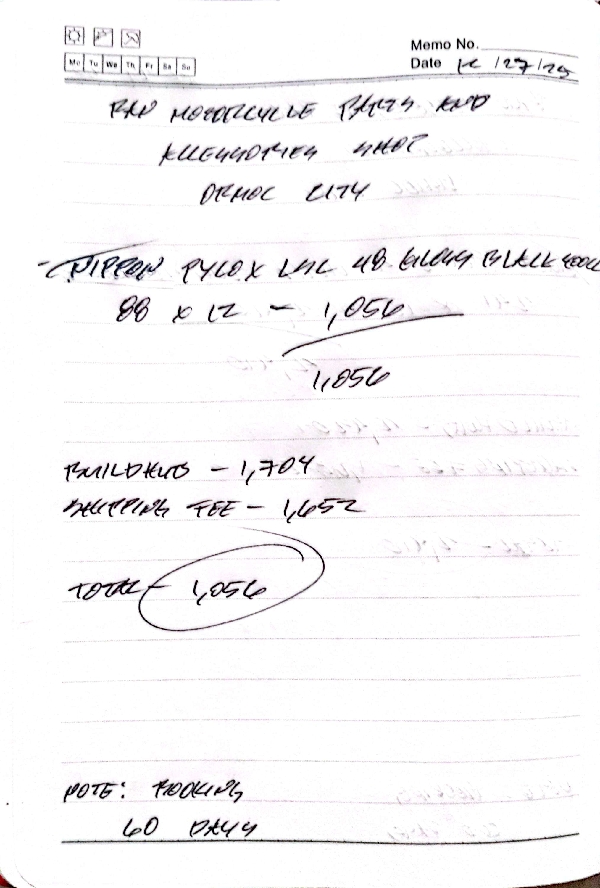 Mo Tu We Th Fr Sa Su
Memo No.
Date 12/27/25
RAN MOTORCYCLE PARTS AND
ACCESSORIES SHOP
ORMOC CITY
- NIPPON PYLOX LAZ 48 GLOSS BLACK 400CC
88 x 12 - 1,056
1,056
BUILDING - 1,704
SHIPPING FEE - 1,652
TOTAL - 1,056
NOTE: BOOKING
60 DAYS